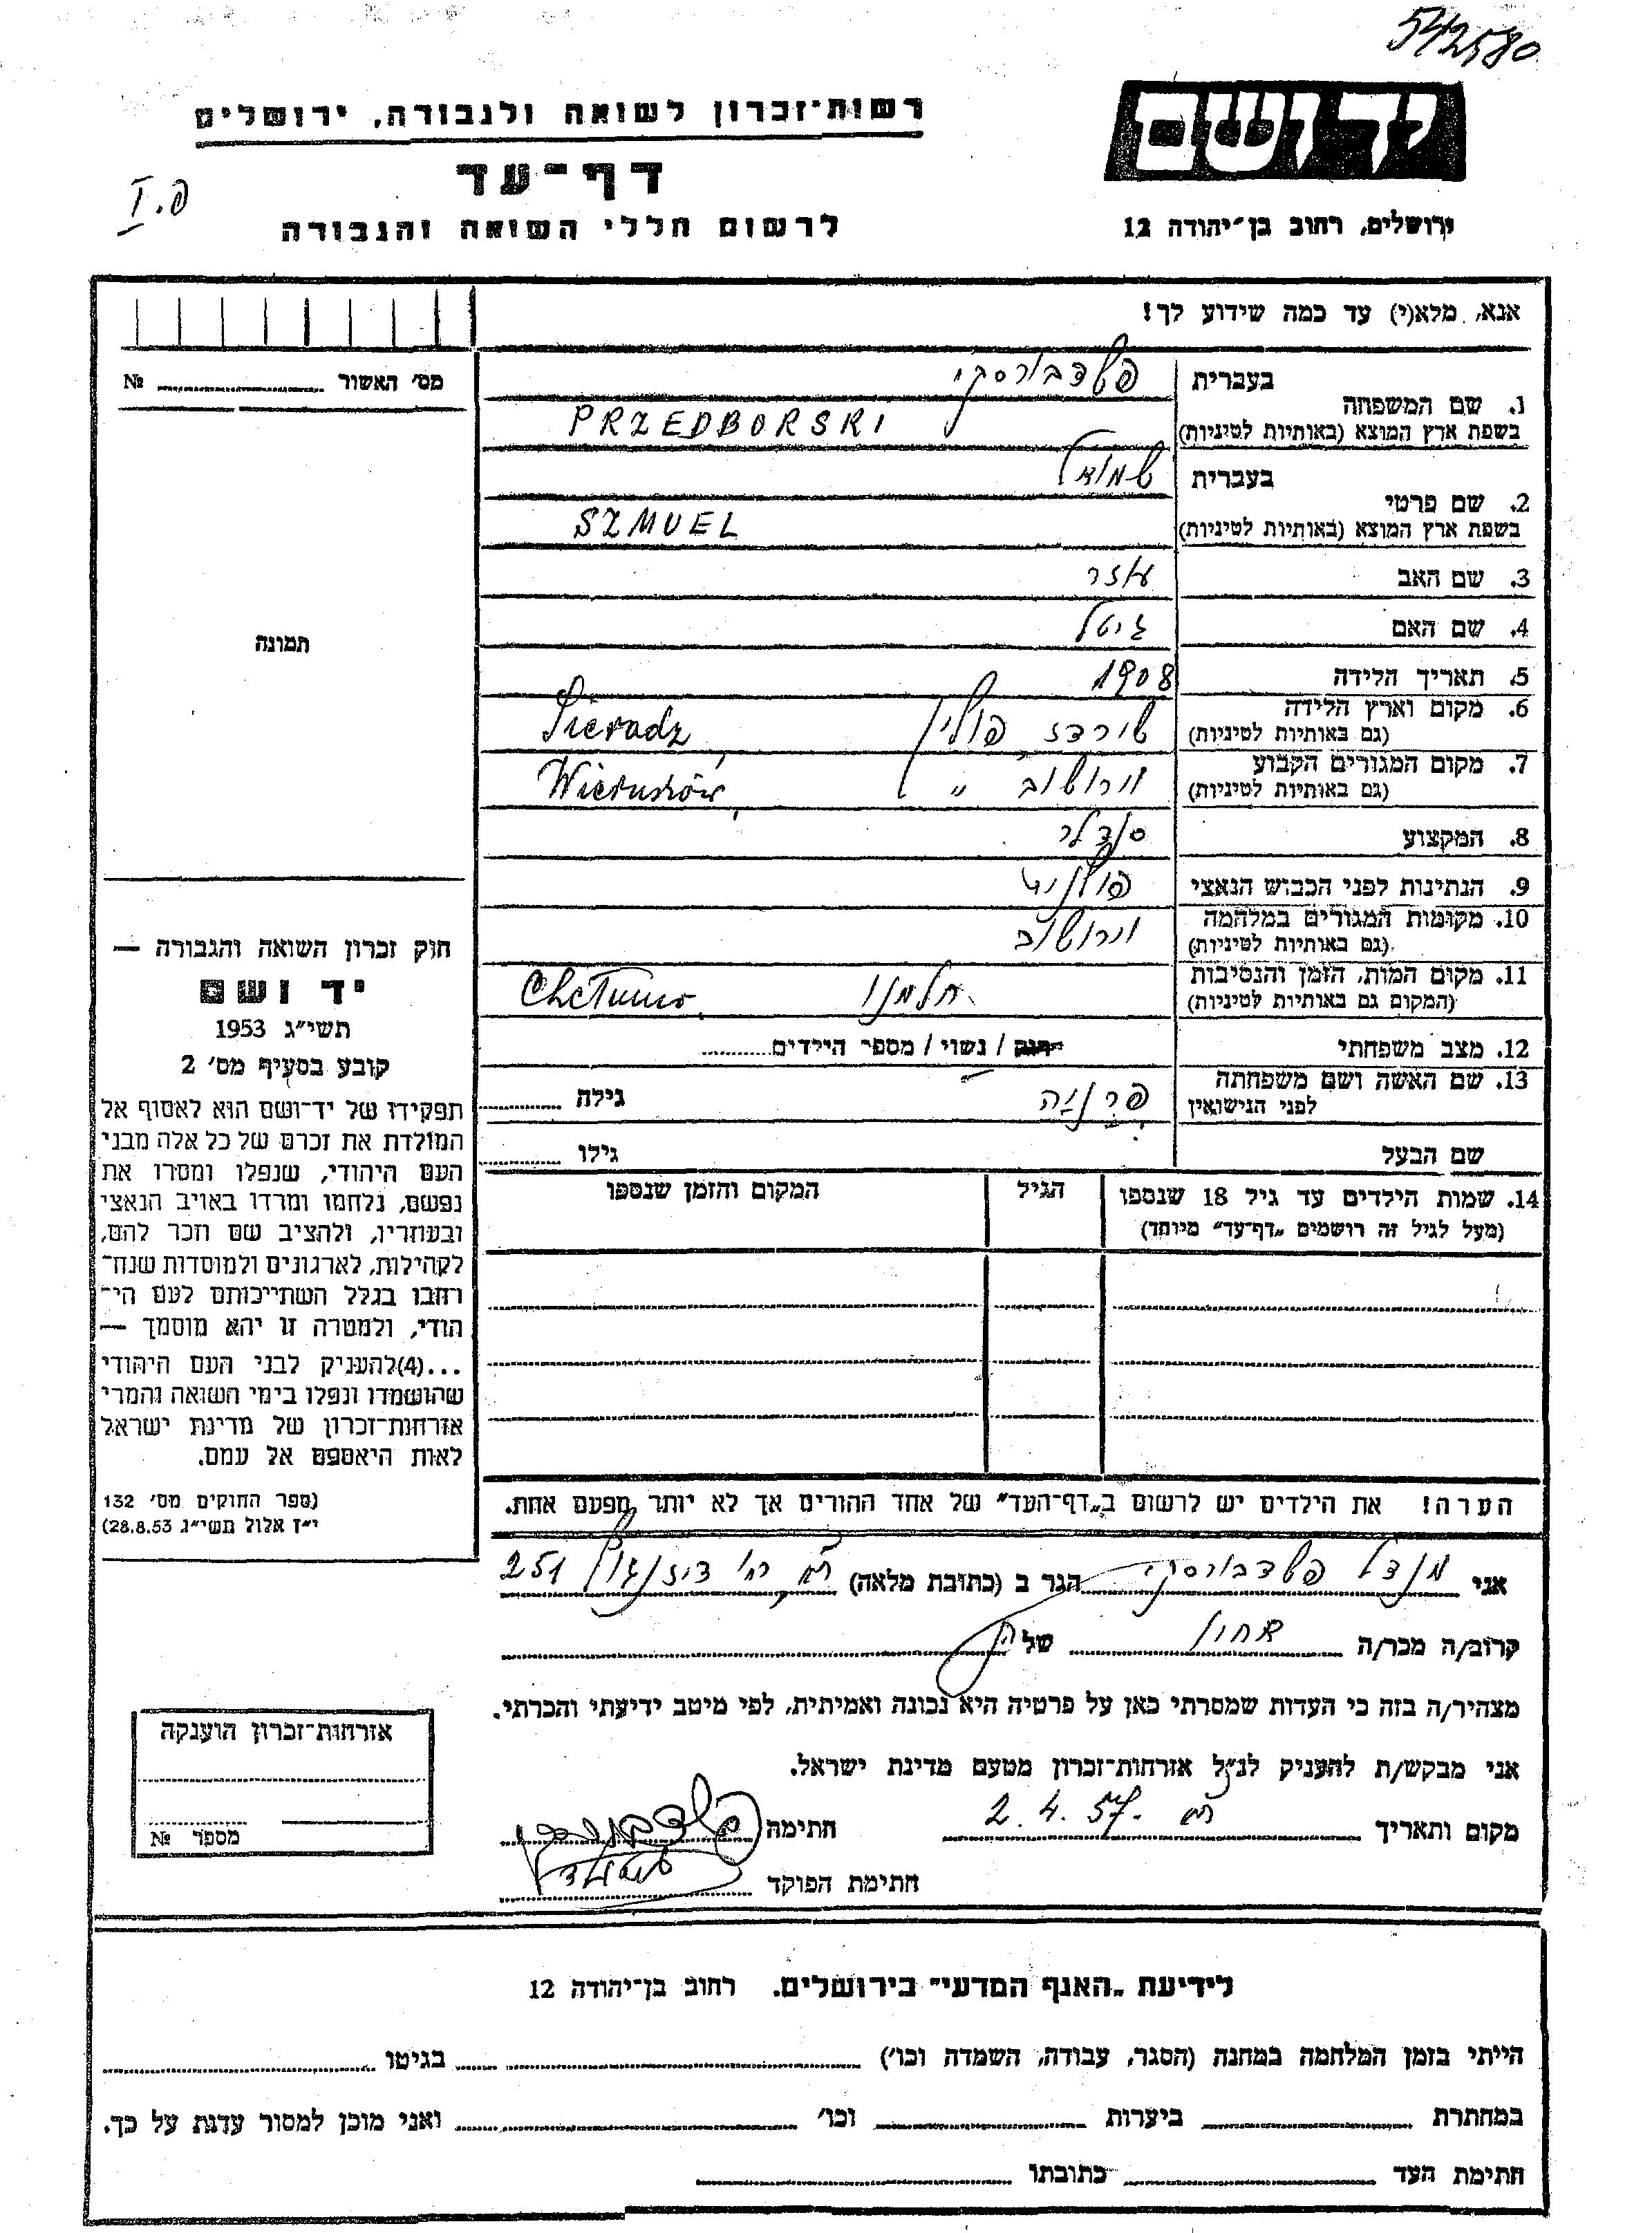 542580
יד ושם
ירושלים, רחוב בן־יהודה 12
רשות־זכרון לשואה ולגבורה, ירושלים
דף־עד
לרשום חללי השואה והגבורה
פ.I
אנא, מלא(י) עד כמה שידוע לך!
מס׳ האשור № ....................
1. שם המשפחה בעברית פשדבורסקי
בשפת ארץ המוצא (באותיות לטיניות) PRZEDBORSKI
2. שם פרטי בעברית שמואל
בשפת ארץ המוצא (באותיות לטיניות) SZMUEL
3. שם האב עזר
4. שם האם גיטל
5. תאריך הלידה 1908
6. מקום וארץ הלידה שירדז פולין Sieradz
(גם באותיות לטיניות)
7. מקום המגורים הקבוע וירושוב " Wieruszów
(גם באותיות לטיניות)
8. המקצוע סנדלר
9. הנתינות לפני הכבוש הנאצי פולנית
10. מקומות המגורים במלחמה וירושוב
(גם באותיות לטיניות)
11. מקום המות, הזמן והנסיבות חלמנו Chełmno
(המקום גם באותיות לטיניות)
12. מצב משפחתי רווק / נשוי / מספר הילדים..........
13. שם האשה ושם משפחתה פרניה גילה ..........
לפני הנישואין
שם הבעל גילו ..........
14. שמות הילדים עד גיל 18 שנספו הגיל המקום והזמן שנספו
(מעל לגיל זה רושמים „דף־עד" מיוחד)
הערה! את הילדים יש לרשום ב„דף־העד" של אחד ההורים אך לא יותר מפעם אחת.
תמונה
חוק זכרון השואה והגבורה —
יד ושם
תשי״ג 1953
קובע בסעיף מס׳ 2
תפקידו של יד־ושם הוא לאסוף אל
המולדת את זכרם של כל אלה מבני
העם היהודי, שנפלו ומסרו את
נפשם, נלחמו ומרדו באויב הנאצי
ובעוזריו, ולהציב שם וזכר להם,
לקהילות, לארגונים ולמוסדות שנח־
רבו בגלל השתייכותם לעם הי־
הודי, ולמטרה זו יהא מוסמך —
...(4)להעניק לבני העם היהודי
שהושמדו ונפלו בימי השואה והמרי
אזרחות־זכרון של מדינת ישראל
לאות היאספם אל עמם.
(ספר החוקים מס׳ 132
י״ז אלול תשי״ג 28.8.53)
אני מנדל פשדבורסקי הגר ב (כתובת מלאה) ת״א, רח׳ דיזנגוף 251
קרוב/ה מכר/ה אחיו של
מצהיר/ה בזה כי העדות שמסרתי כאן על פרטיה היא נכונה ואמיתית, לפי מיטב ידיעתי והכרתי.
אני מבקש/ת להעניק לנ״ל אזרחות־זכרון מטעם מדינת ישראל.
מקום ותאריך ת״א 2.4.57 חתימה פשדבורסקי
חתימת הפוקד
אזרחות־זכרון הוענקה
מספר №
לידיעת „האגף המדעי" בירושלים. רחוב בן־יהודה 12
הייתי בזמן המלחמה במחנה (הסגר, עבודה, השמדה וכו׳) .................... בגיטו ....................
במחתרת .................... ביערות .................... וכו׳ .................... ואני מוכן למסור עדות על כך.
חתימת העד .................... כתובתו ....................